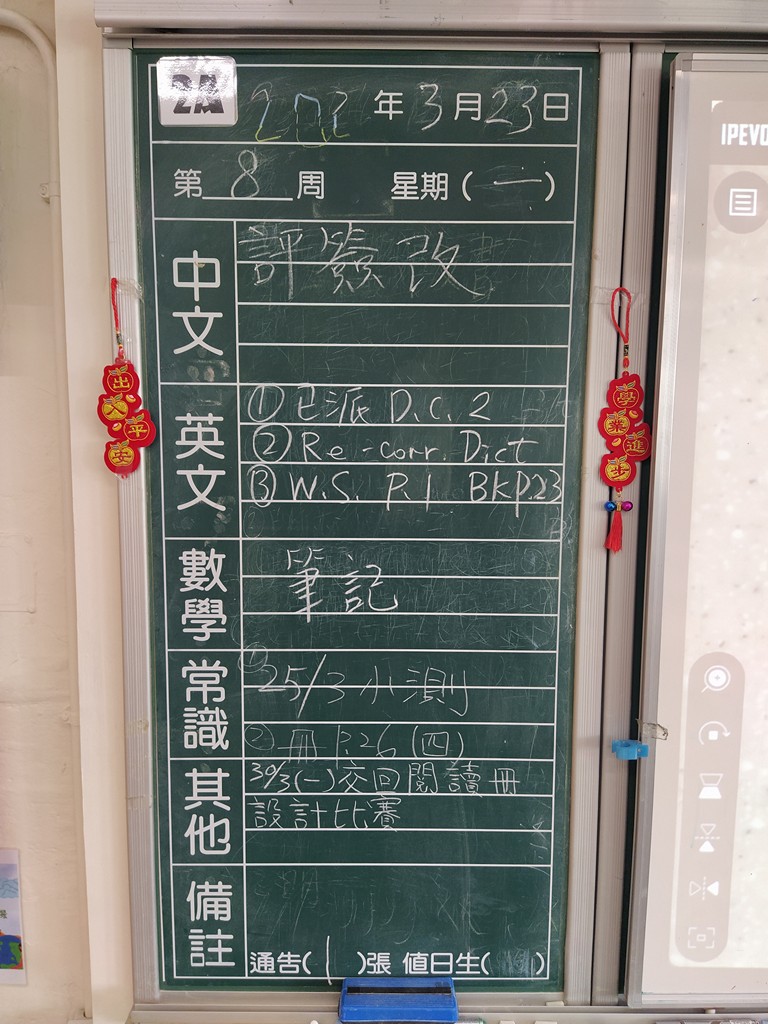 2A
202 年 3 月 23 日
第 8 周 星期 ( 一 )
中文
評簽改
英文
① 已派 D.C. 2
② Re-corr. Dict
③ W.S. P.1 BKP.23
數學
筆記
常識
① 25/3 小測
② 冊 P.26 (四)
其他
30/3 (一) 交回閱讀冊
設計比賽
備註
通告( 1 )張 值日生( )
出入平安
學業進步
IPEVO